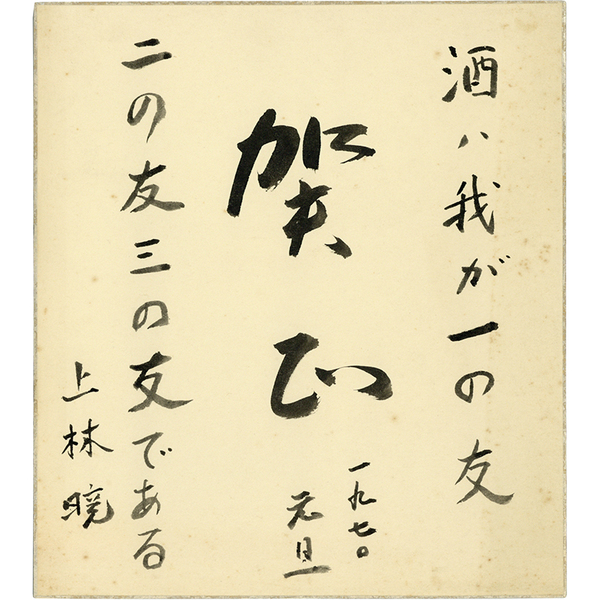 酒ハ我が一の友
賀正
一九七〇
元旦
二の友三の友である
上林暁